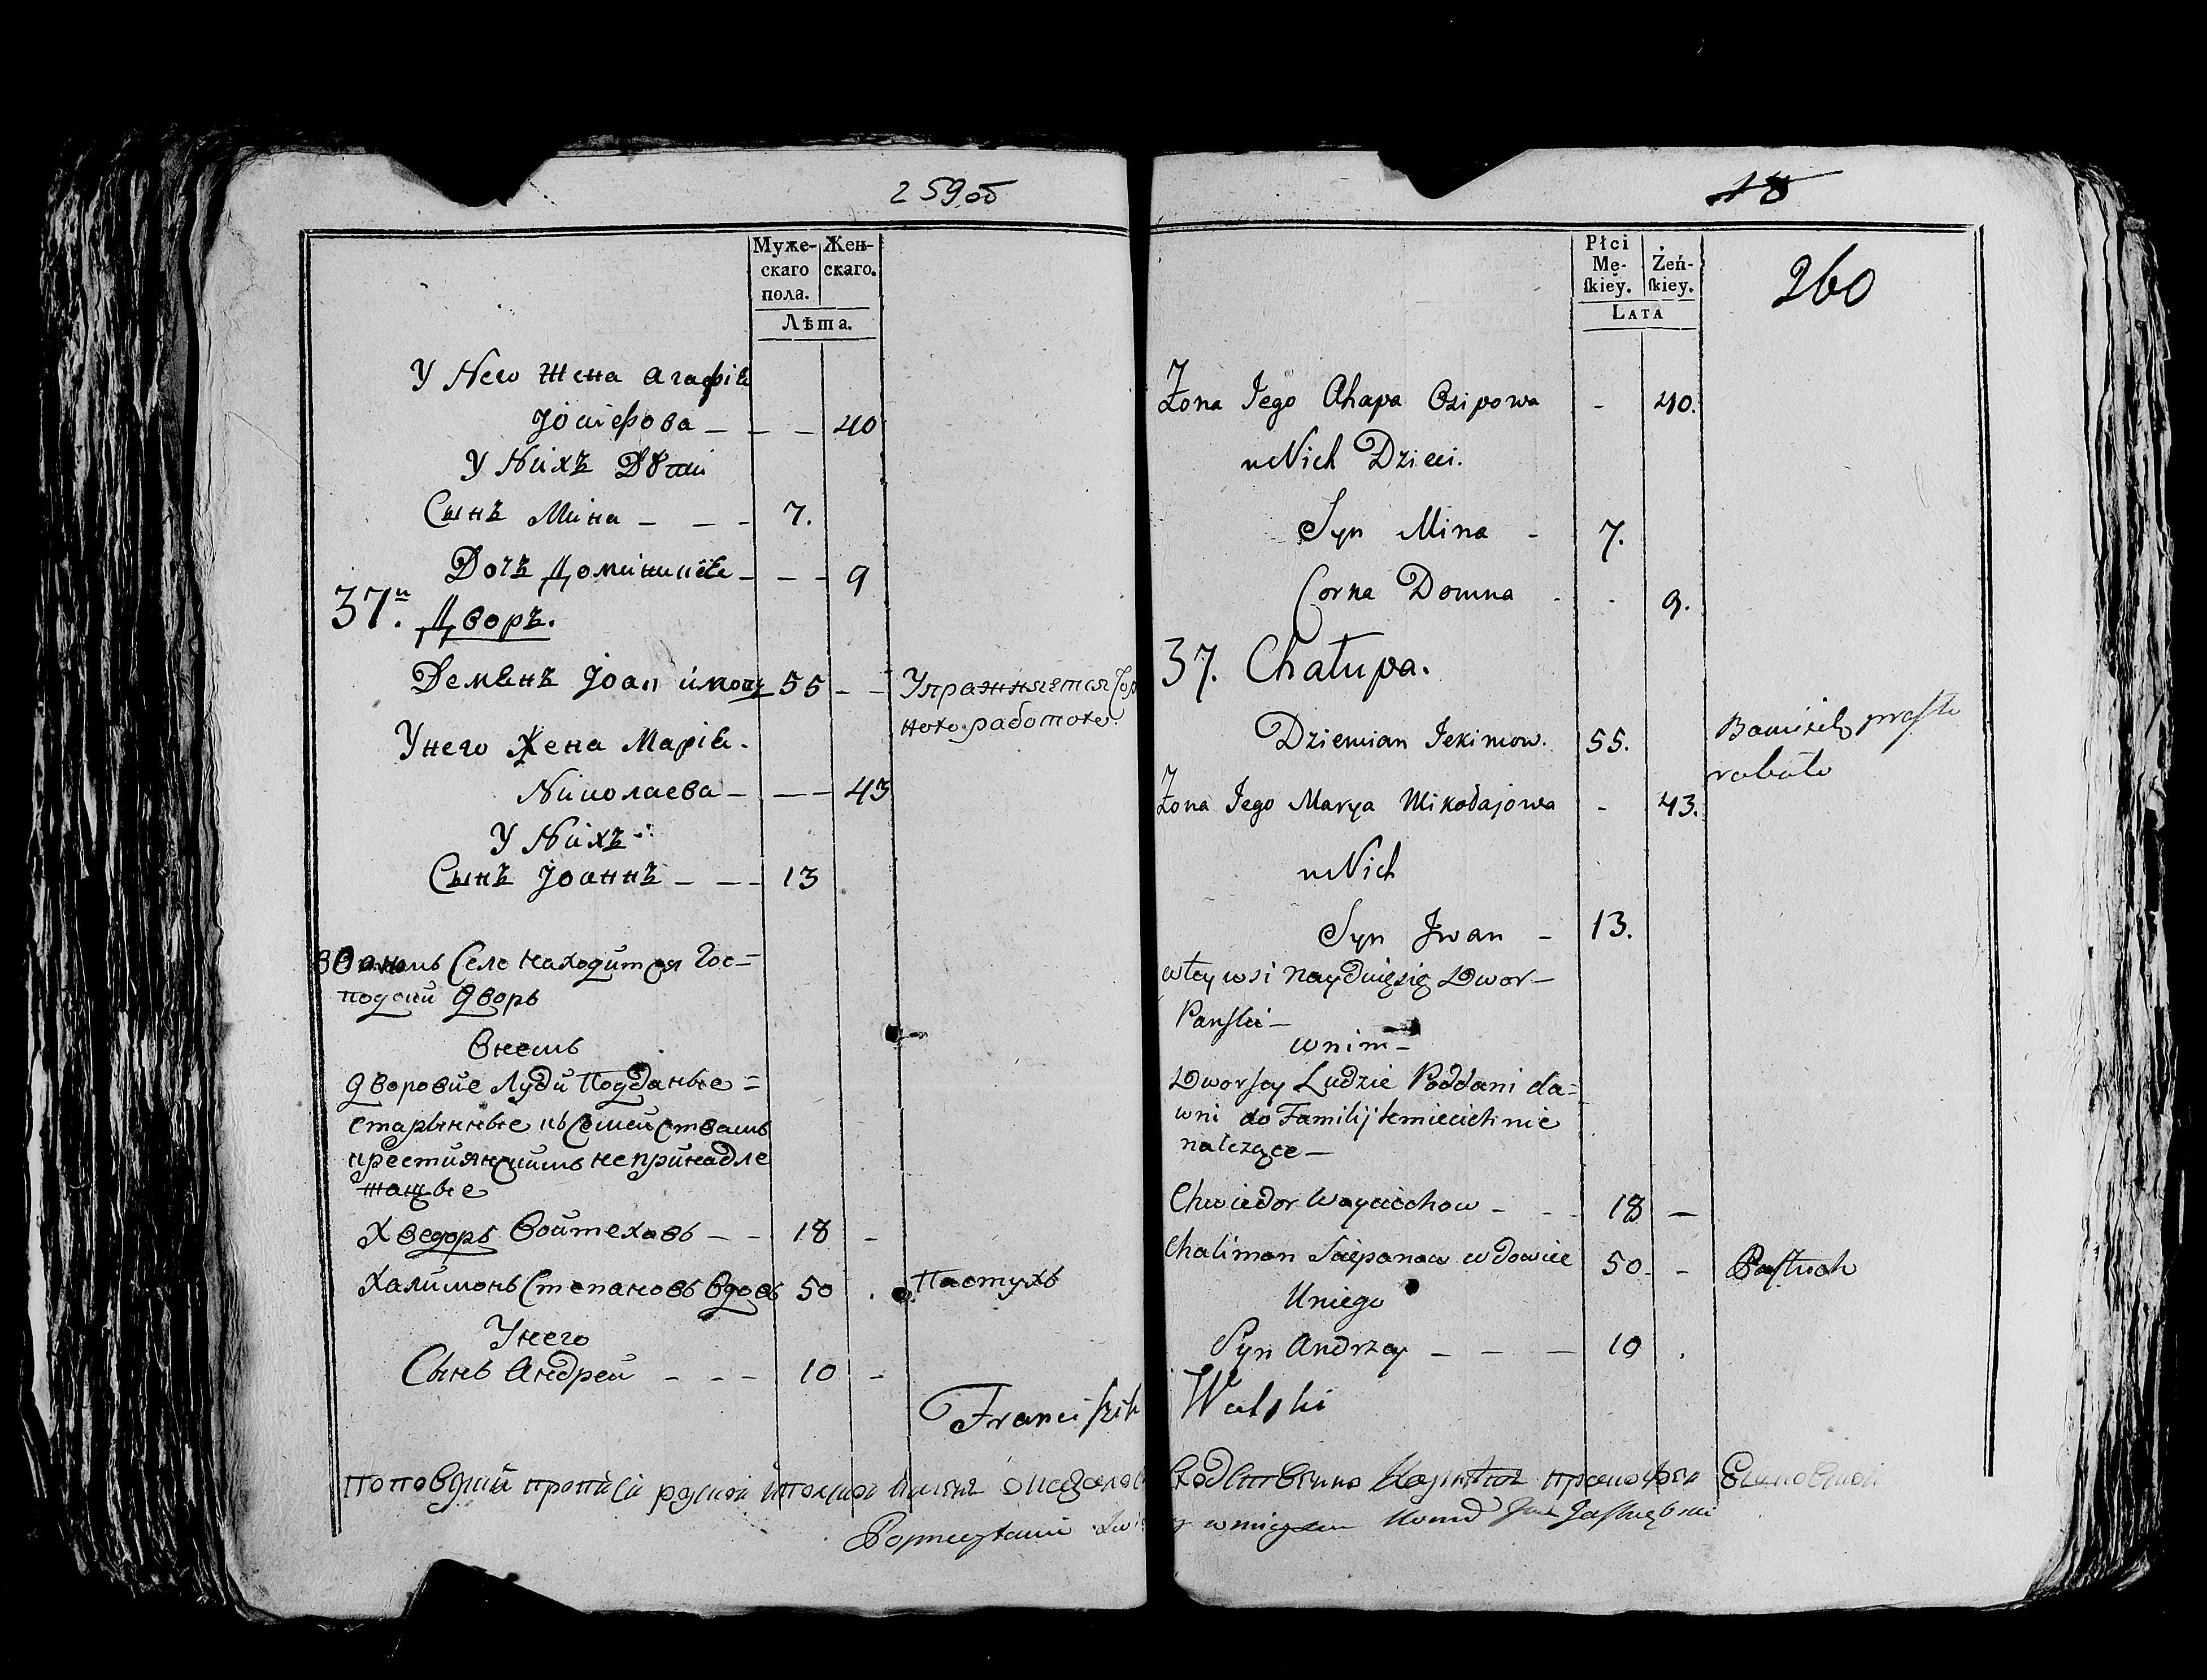 259 об
Муже- Жен-
скаго скаго.
пола.
Лѣта.
У Него Жена Агафія
Іосифова — — — 40
У Нихъ Дѣти
Сынъ Мина — — — 7.
Дочъ Доминикія — — — 9
37й. Дворъ.
Деменъ 55 — — Упражняется
работою
У него Жена Марія.
Николаева — — — 43
У Нихъ
Сынъ Іоаннъ — — — 13
Селе находится Гос=
подский Дворъ
В немъ
Дворовие Люди Подданые =
старынные къ Семействамъ
крестиянскимъ не принадле
жащые
Хведоръ Войтеховъ — — 18 —
Халимонъ Степановъ вдовъ 50 . Пастухъ
У него
Сынъ Андрей — — — 10 —
18
260
Płci
Mę- Żeń-
ſkiey. ſkiey.
Lata
Żona Jego Ahapa Osipowa - 40.
u Nich Dzieci.
Syn Mina - 7.
Corka Domna - - 9.
37. Chałupa.
Dziemian Jekimow. 55.
Żona Jego Marya Mikołajowa - 43.
u Nich
Syn Jwan - 13.
w tey wsi Nayduię się Dwor—
Panſki —
w nim —
Dworſcy Ludzie Poddani da=
wni do Familij kmiecich nie
należące —
Chwiedor Woyciechow - - - 18 —
Chalimon Sciepanow wdowiec 50. - Paſtuch
U niego
Syn Andrzey — — — 10 .
Franciſzek Walſki